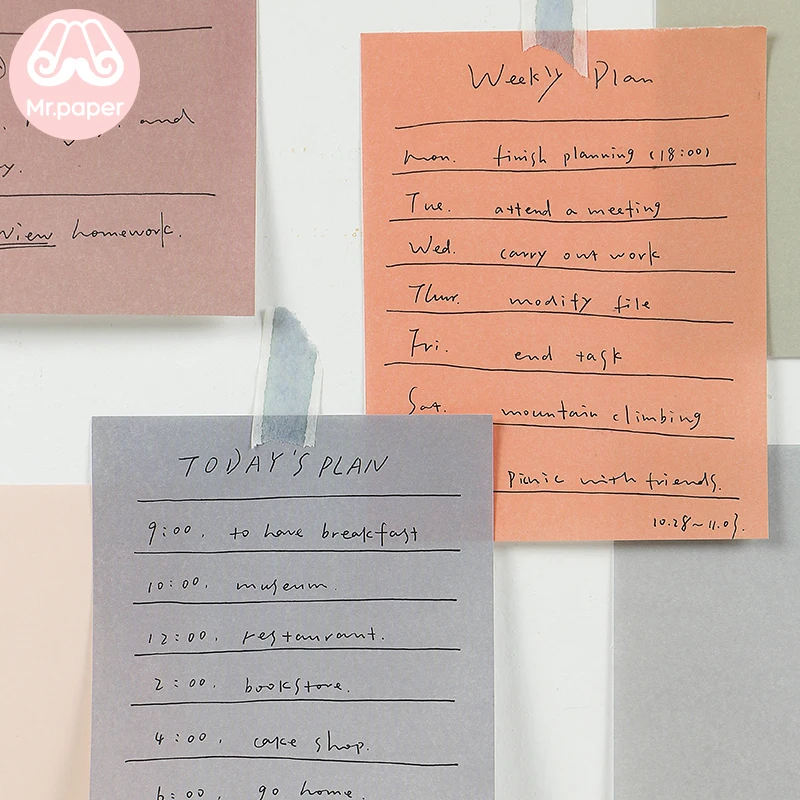 Mr.paper
and
y.
view homework.
Weekly Plan
Mon. finish planning (18:00)
Tue. attend a meeting
Wed. carry out work
Thur. modify file
Fri. end task
Sat. mountain climbing
Picnic with friends.
10.28~11.03.
TODAY'S PLAN
9:00. to have breakfast
10:00. museum.
12:00. restaurant.
2:00. bookstore.
4:00. cake shop.
6:00. go home.